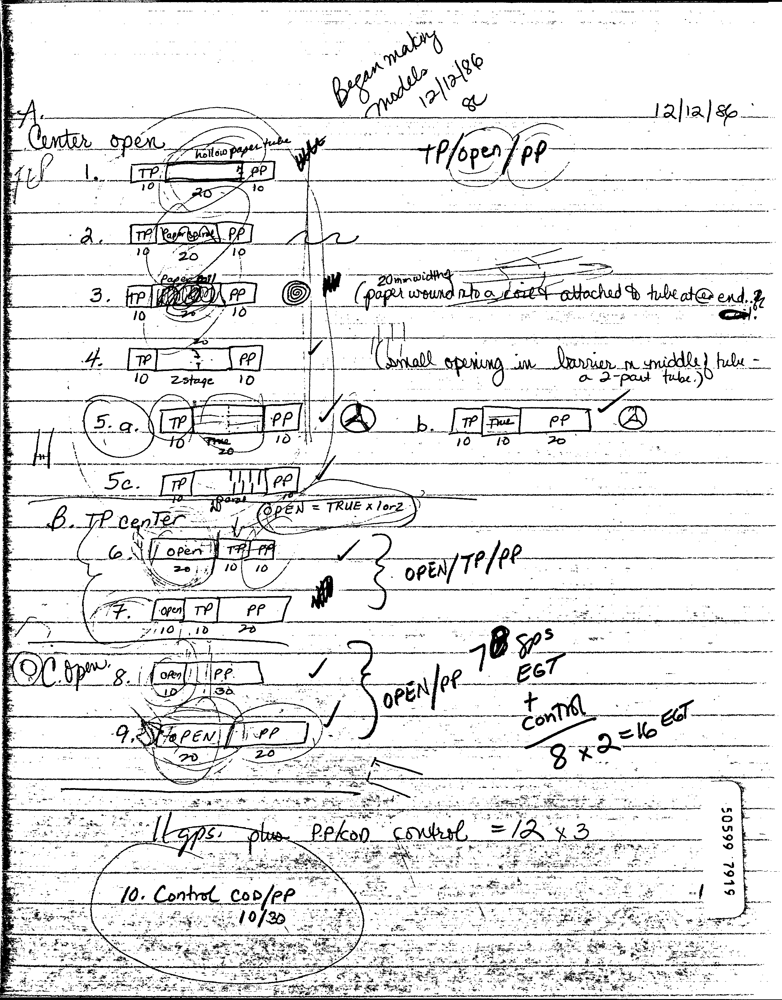 Began making
models
12/12/86
A.
12/12/86
Center open
TP/open/PP
hollow paper tube
1. TP PP
10 20 10
2. TP Paper spiral PP
10 20 10
Paper roll
3. TP PP
10 20 10
20mm width
(paper wound into a coil & attached to tube at @ end.
20
4. TP PP
10 2 stage 10
(small opening in barrier in middle of tube -
a 2-part tube.)
5. a. TP PP
10 True 10
20
b. TP True PP
10 10 20
5c. TP PP
10 10
B. TP center
OPEN = TRUE x 1 or 2
6. OPEN TP PP
20 10 10
OPEN/TP/PP
7. Open TP PP
10 10 20
C. Open
8. OPEN PP
10 30
OPEN/PP
9. OPEN PP
20 20
7 gps
EGT
+
control
8 x 2 = 16 EGT
11 gps. plus PP/COD control = 12 x 3
10. Control COD/PP
10/30
50599 7919